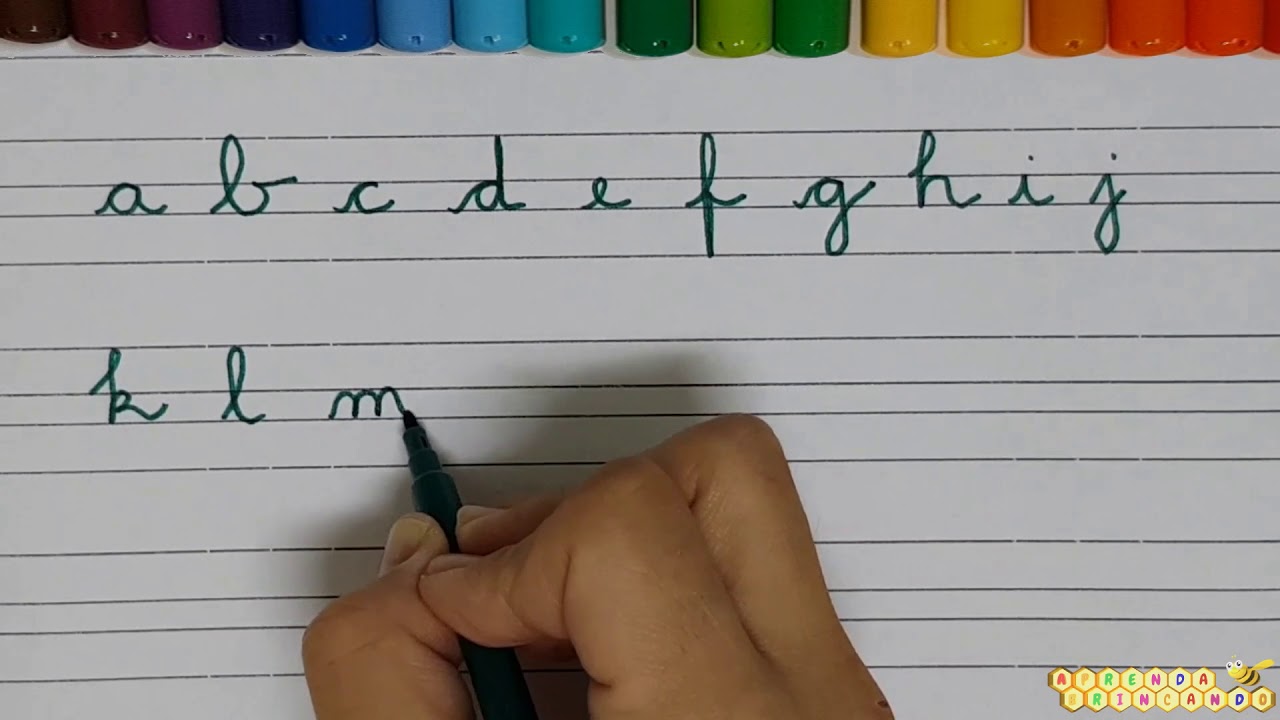 a b c d e f g h i j
k l m
APRENDA
BRINCANDO